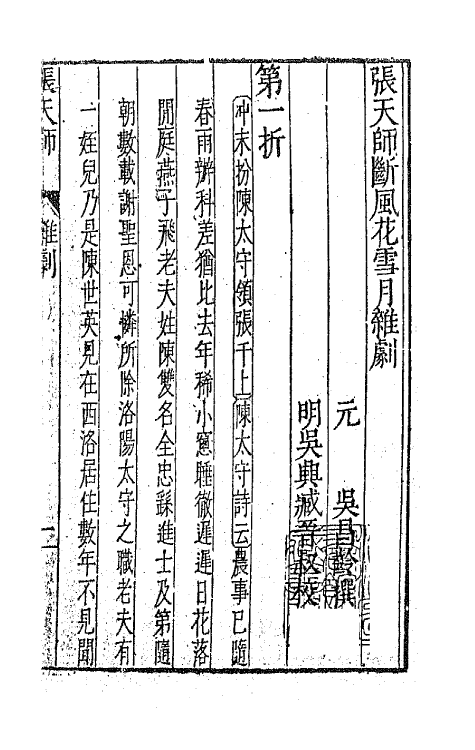 張天師斷風花雪月雜劇
元 吳昌齡撰
明吳興臧晉叔校
第一折
冲末扮陳太守領張千上陳太守詩云農事已隨
春雨辦科差猶比去年稀小窻睡徹遲遲日花落
閒庭燕子飛老夫姓陳雙名全忠繇進士及第隨
朝數載謝聖恩可憐所除洛陽太守之職老夫有
一姪兒乃是陳世英見在西洛居住數年不見聞
張天師 雜劇 一